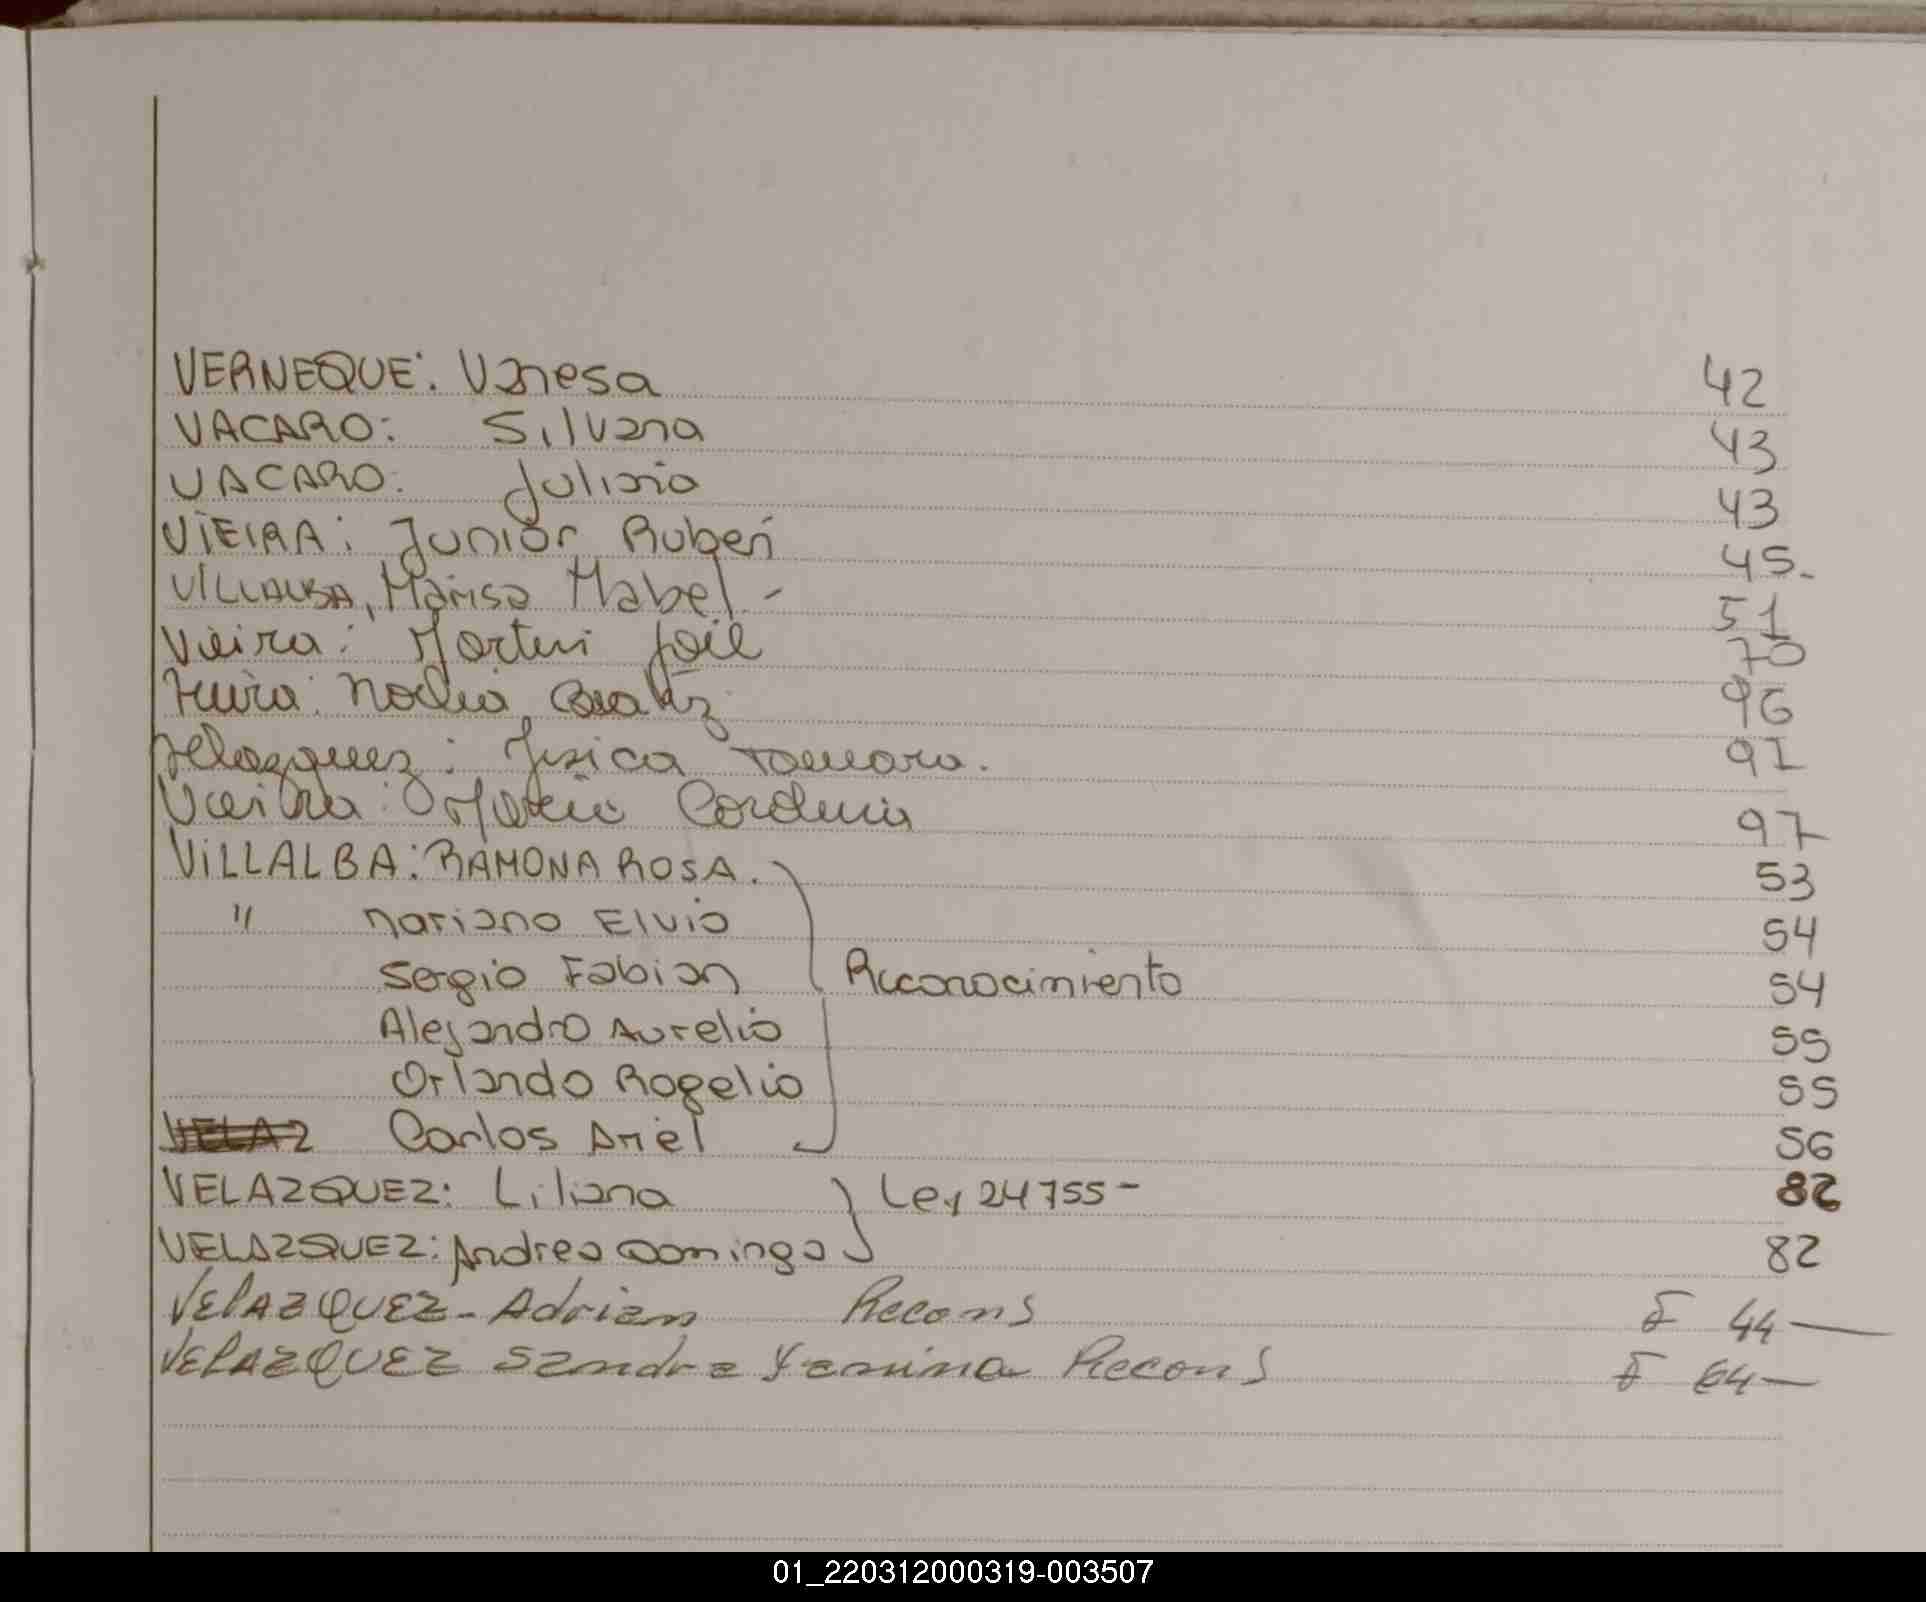 VERNEQUE: Vanesa 42
VACARO: Silvana 43
VACARO: Juliana 43
VIEIRA: Junior Ruben 45.
VILLALBA, Marisa Mabel.- 51
Vieira: Martin Joel 70
Noelia Beatriz 96
Velazquez: Jesica Tamara. 91
Vieira: 97
VILLALBA: RAMONA ROSA. 53
" Mariano Elvio 54
Sergio Fabian Reconocimiento 54
Alejandro Aurelio 55
Orlando Rogelio 55
VELAZ Carlos Ariel 56
VELAZQUEZ: Liliana Ley 24755- 82
VELAZQUEZ: Andrea Dominga 82
VELAZQUEZ- Adrian Recons F 44—
VELAZQUEZ Sandra Yanina Recons F 64—
01_220312000319-003507